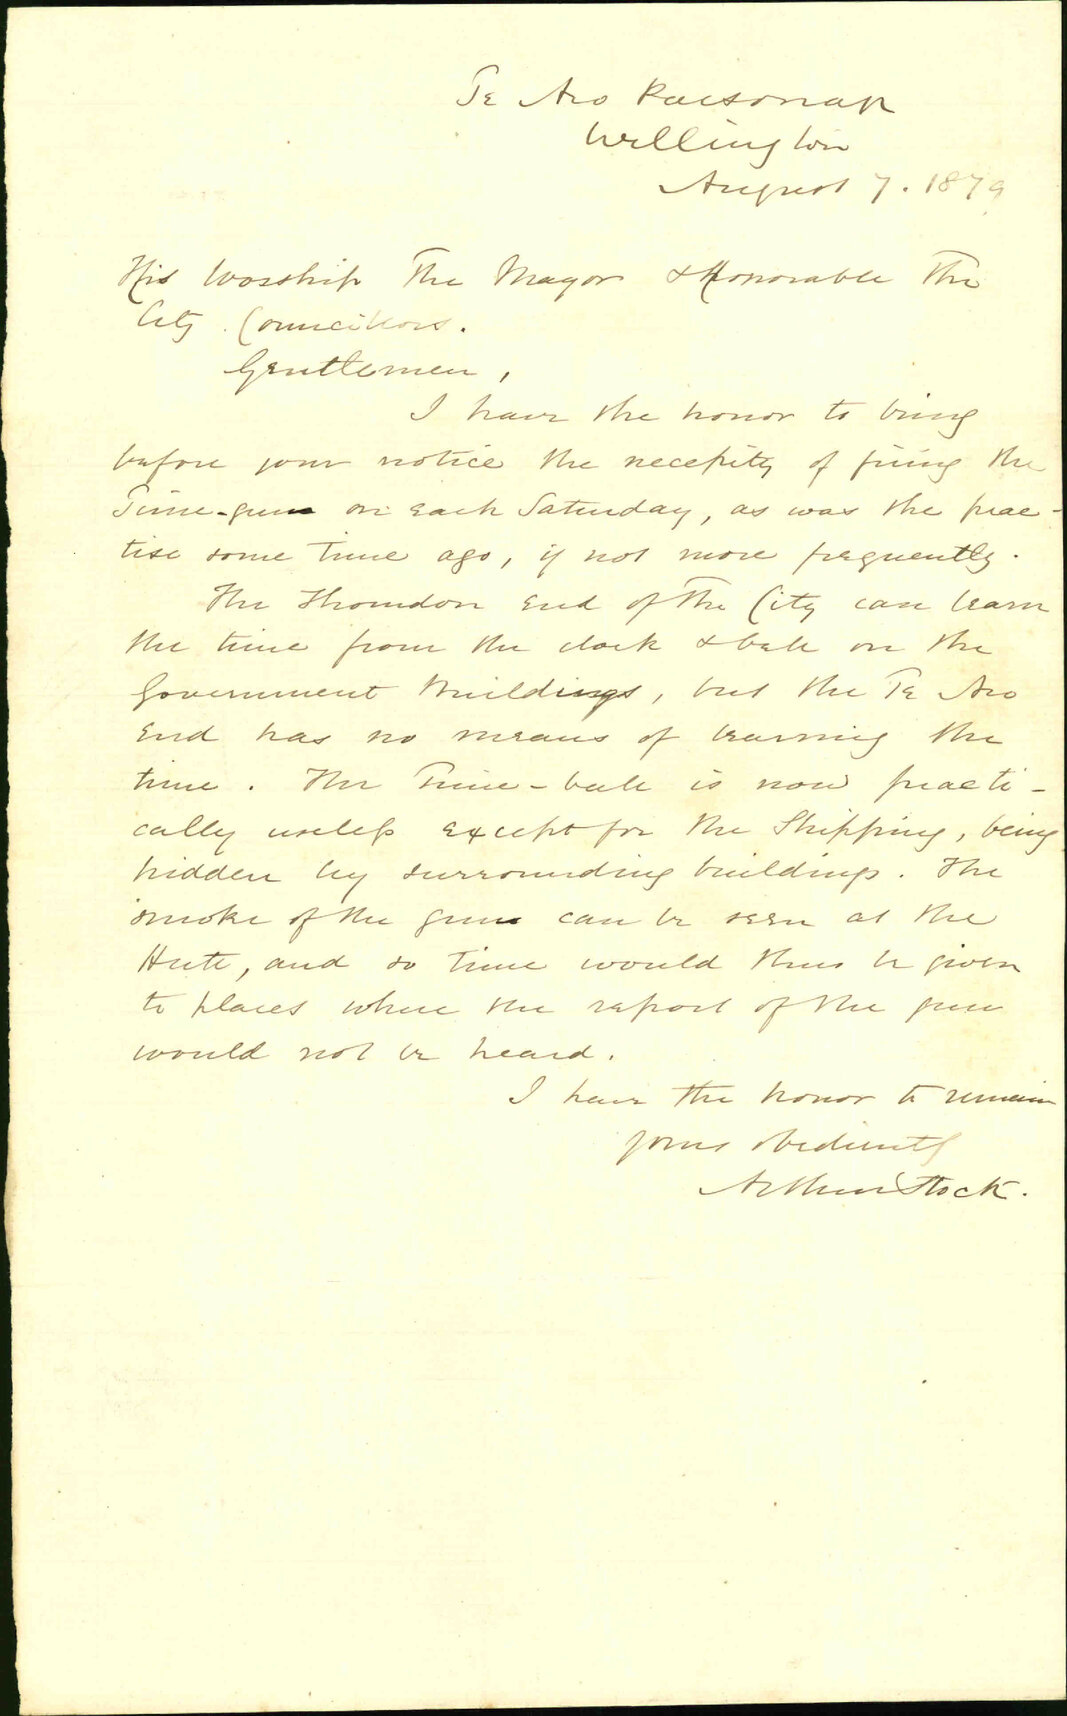 Te Aro Parsonage
Wellington
August 7. 1879
His Worship The Mayor & Honorable The
City Councillors.
Gentlemen,
I have the honor to bring
before your notice the necessity of firing the
Time-gun on each Saturday, as was the prac-
tise some time ago, if not more frequently.
The Thorndon End of the City can learn
the time from the clock & ball on the
Government Buildings, but the Te Aro
End has no means of learning the
time. The Time-ball is now practi-
cally useless except for the Shipping, being
hidden by surrounding buildings. The
smoke of the gun can be seen at the
Hutt, and so time would thus be given
to places where the report of the gun
would not be heard.
I have the honor to remain
yours obediently
Arthur Stock.